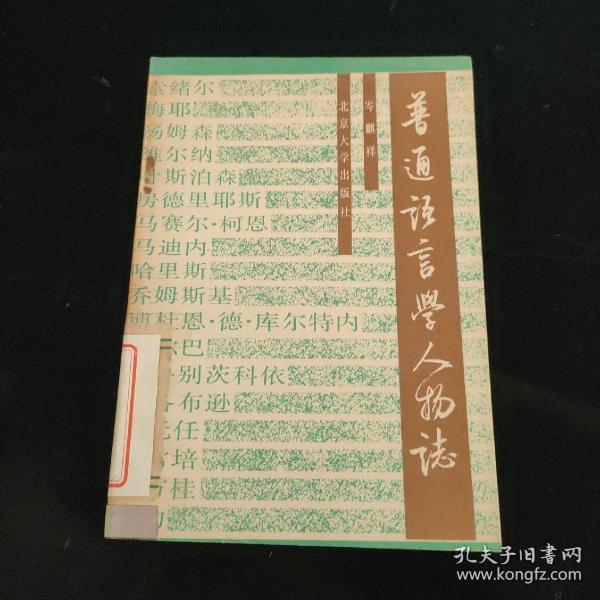 普通語言學人物誌
岑麒祥
北京大学出版社
索绪尔
梅耶
汤姆森
维尔纳
叶斯泊森
房德里耶斯
马赛尔·柯恩
马迪内
哈里斯
乔姆斯基
博杜恩·德·库尔特内
巴
别茨科依
布逊
元任
培
桂
孔夫子旧书网
www.kongfz.com